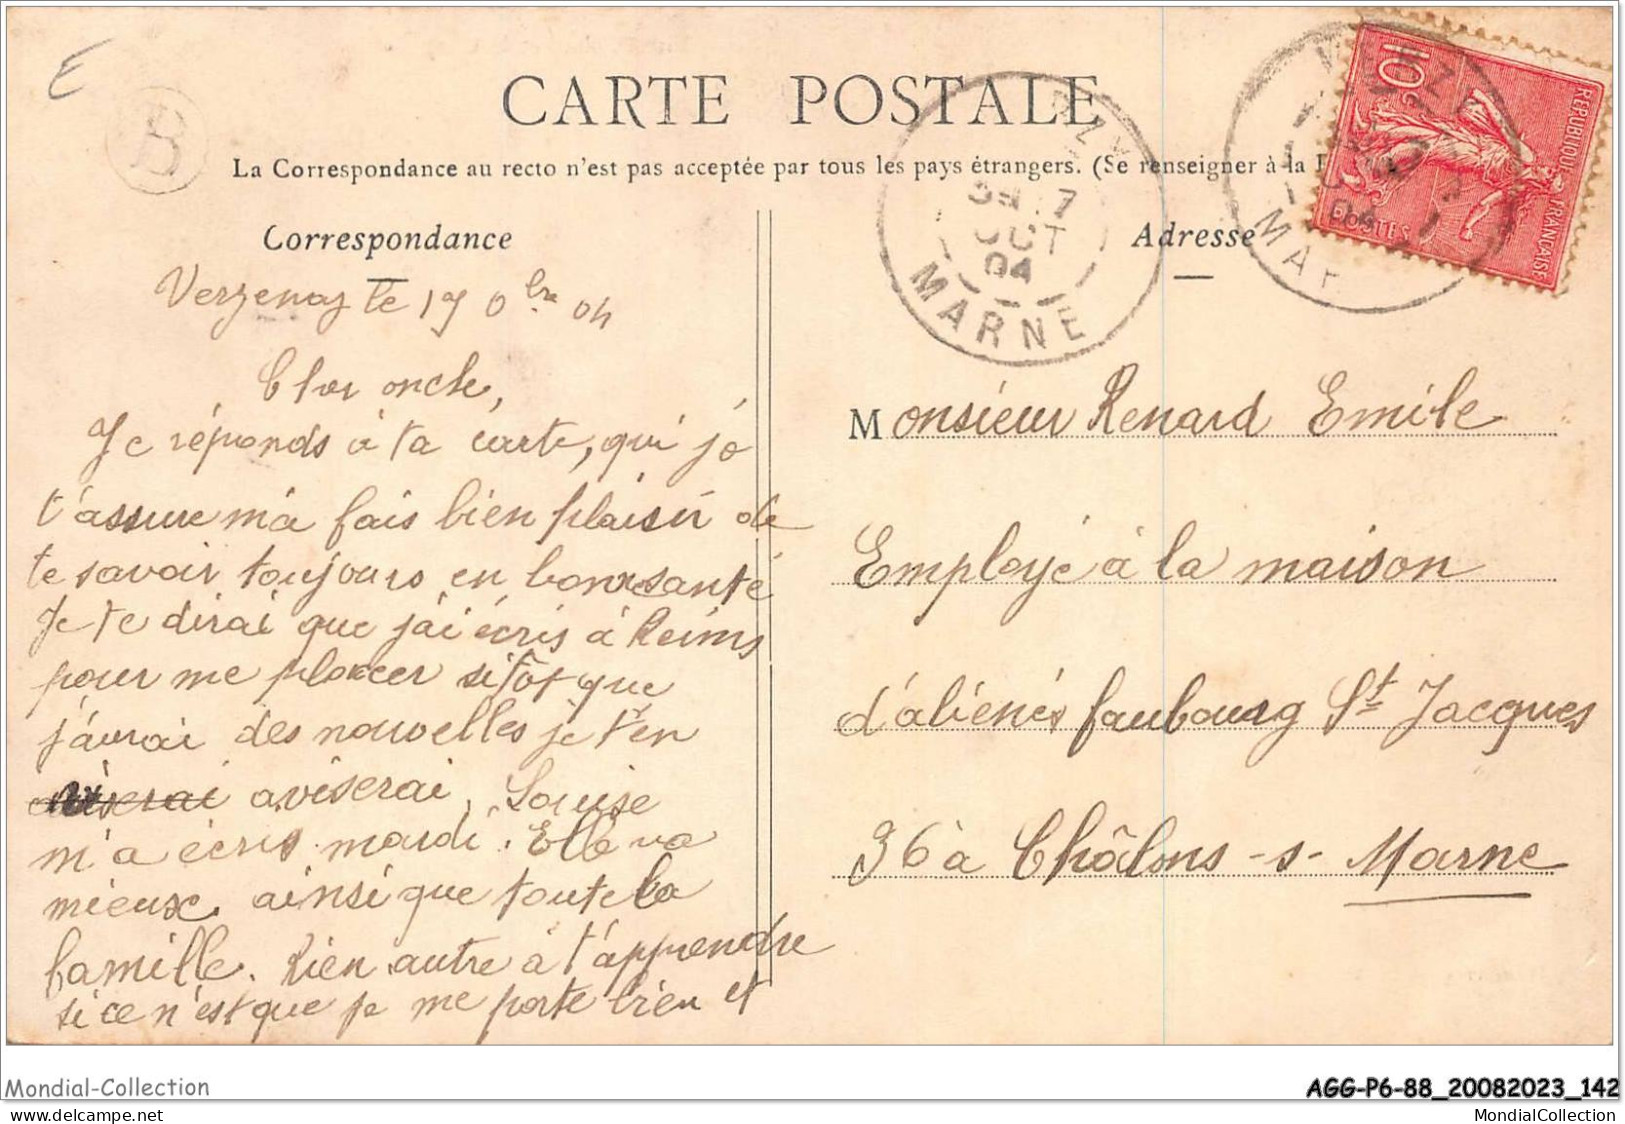 E
B
CARTE POSTALE
La Correspondance au recto n'est pas acceptée par tous les pays étrangers. (Se renseigner à la
Correspondance
Adresse
10c
REPUBLIQUE FRANÇAISE
POSTES
7
OCT
04
MARNE
04
MAR
Verzenay le 19 8bre 04
Cher oncle,
Je réponds à ta carte, qui je
t'assure m'a fais bien plaisir de
te savoir toujours en bonne santé
Je te dirai que j'ai écris à Reims
pour me placer sitôt que
j'aurai des nouvelles je t'en
aviserai aviserai, Louise
m'a écris mardi. Elle va
mieux ainsi que toute la
famille. Rien autre à t'apprendre
si ce n'est que je me porte bien et
Monsieur Renard Emile
Employé à la maison
d'aliénés faubourg St Jacques
36 à Châlons -s- Marne
Mondial-Collection
AGG-P6-88_20082023_142
delcampe.net
MondialCollection